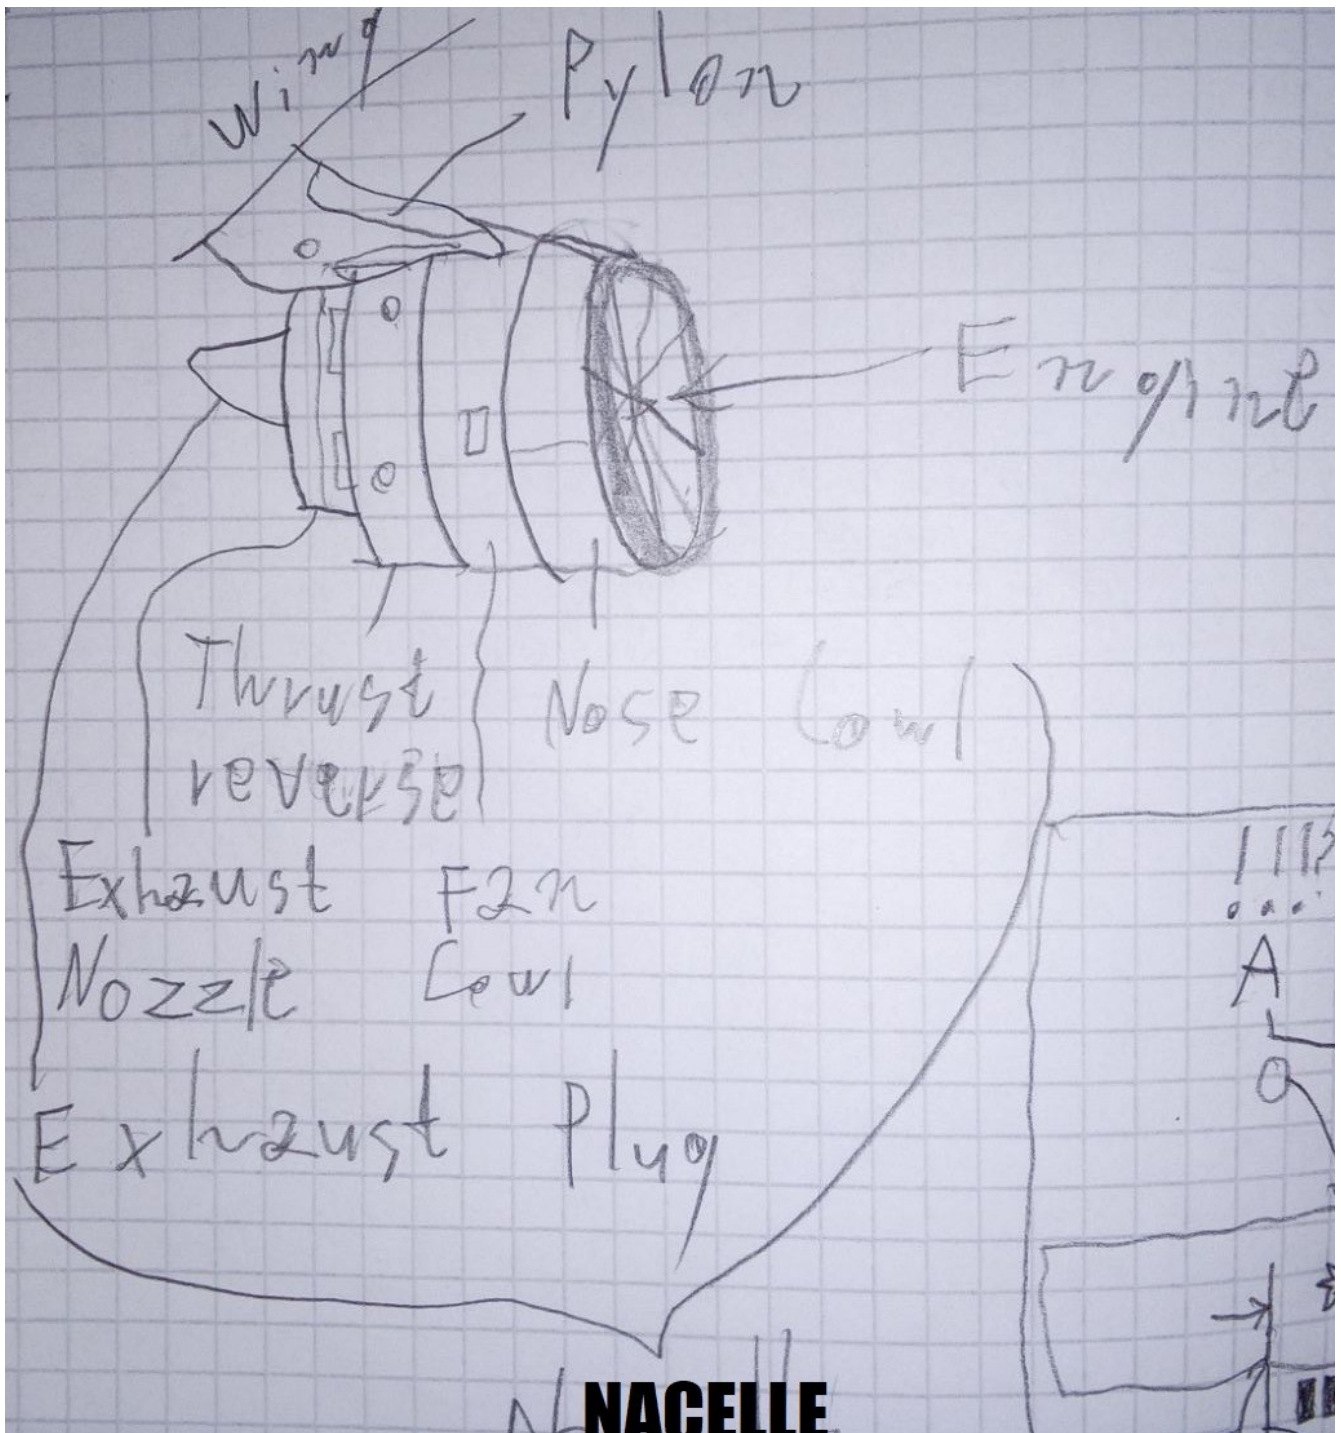 Wing
Pylon
Engine
Thrust
reverse
Nose Cowl
Exhaust
Nozzle
Fan
Cowl
Exhaust Plug
A
NACELLE